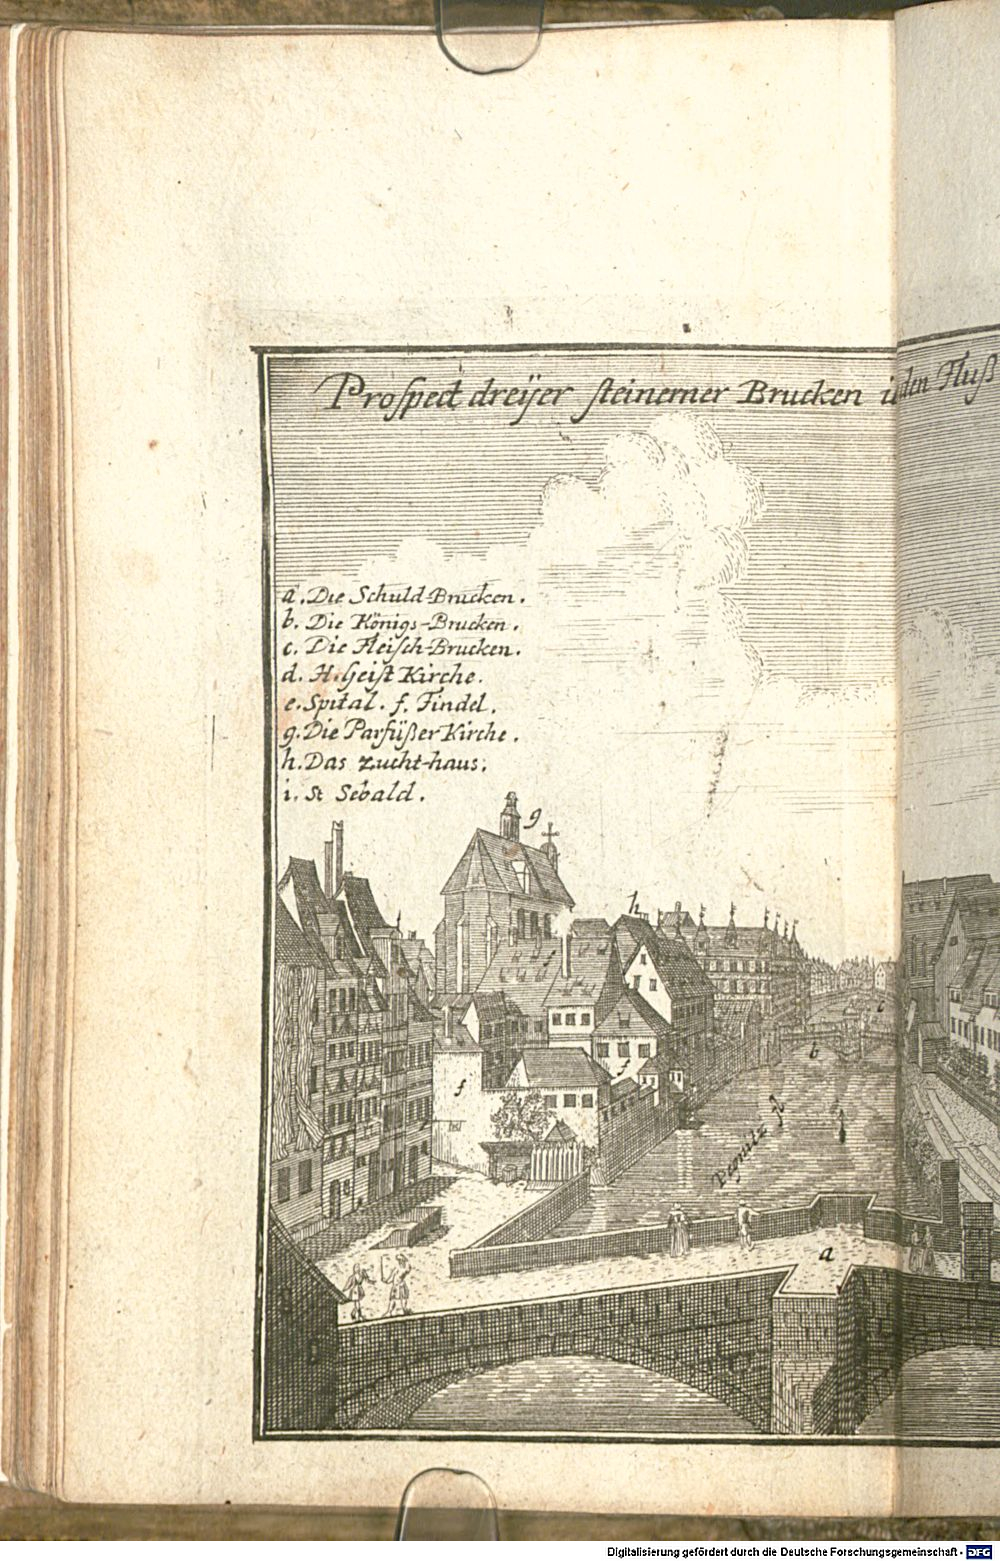 Prospect dreÿer steinerner Brucken in den Fluß
a. Die Schuld-Brucken.
b. Die Königs-Brucken.
c. Die Fleisch-Brucken.
d. H. Geist Kirche.
e. Spital. f. Findel.
g. Die Parfüßer Kirche.
h. Das Zucht-haus.
i. St Sebald.
g
h
f
f
f
b
Pegnitz
a
Digitalisierung gefördert durch die Deutsche Forschungsgemeinschaft - DFG